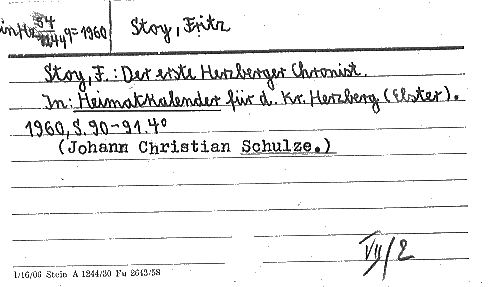 in Hz 54
4449=1960
Stoy, Fritz
Stoy, F.: Der erste Herzberger Chronist.
In: Heimatkalender für d. Kr. Herzberg (Elster).
1960, S. 90-91. 4°
(Johann Christian Schulze.)
VII/2
1/16/06 Stein A 1244/30 Fu 2643/58